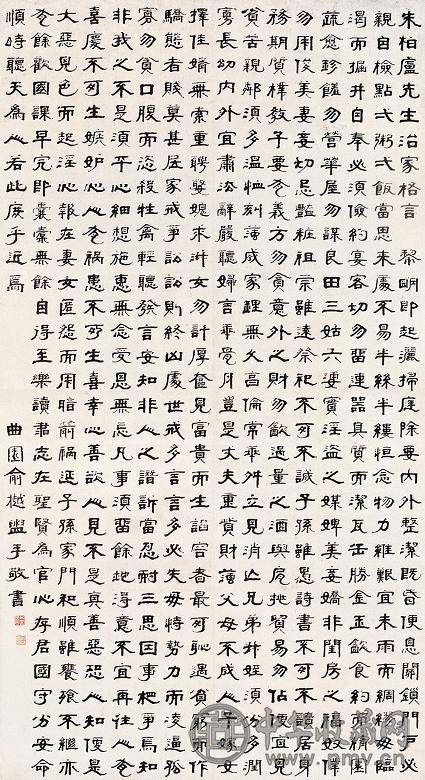 朱柏盧先生治家格言 黎明即起灑掃庭除要內外整潔既昏便息關鎖門戶必
親自檢點弌粥弌飯當思來處不易半絲半縷恒念物力維艱宜未雨而綢繆毋臨
渴而掘井自奉必須儉約宴客切勿留連器具質而潔瓦缶勝金玉飲食約而精園
蔬愈珍饈勿營華屋勿謀良田三姑六婆實淫盜之媒婢美妾嬌非閨房之福奴僕
勿用俊美妻妾切忌豔粧祖宗雖遠祭祀不可不誠子孫雖愚詩書不可不讀居身
務期質樸教子要有義方勿貪意外之財勿飲過量之酒與肩挑貿易勿佔便宜見
貧苦親鄰須多溫恤刻薄成家理無久享倫常乖舛立見消亡兄弟叔姪須分多潤
寡長幼內外宜肅法辭嚴聽婦言乖骨月豈是丈夫重貲財薄父母不成人子嫁女
擇佳婿無索重聘娶媳求淑女勿計厚奩見富貴而生諂容者最可恥遇貧窮而作
驕態者賤莫甚居家戒爭訟訟則終凶處世戒多言言多必失毋恃勢力而凌逼孤
寡勿貪口腹而恣殺牲禽輕聽發言安知非人之譖訴當忍耐三思因事相爭焉知
非我之不是須平心細想施惠無念受恩無忘凡事須留餘地得意不宜再往人有
喜慶不可生嫉妒心人有禍患不可生喜幸心善欲人見不是真善惡恐人知便是
大惡見色而起淫心報在妻女匿怨而用暗箭禍延子孫家門和順雖饔飧不繼亦
有餘歡國課早完即囊橐無餘自得至樂讀書志在聖賢為官心存君國守分安命
順時聽天為人若此庶乎近焉
曲園俞樾盥手敬書
中华收藏网